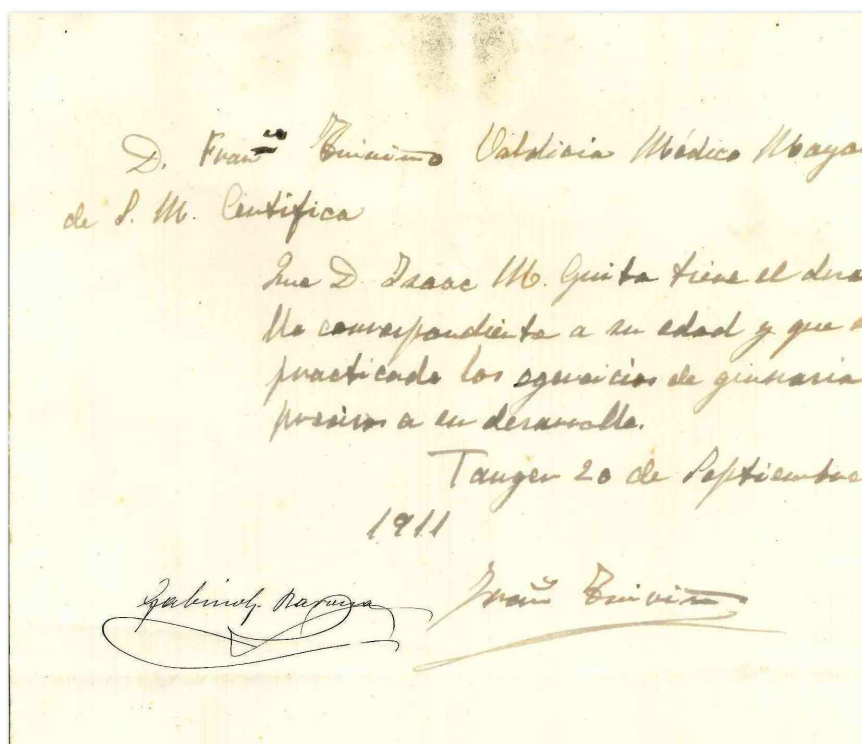 D. Fran^co Triviño Valdivia Médico Mayo
de S. M. Certifica
Que D. Isaac M. Guita tiene el desa
llo correspondiente a su edad y que
practicado los egercicios de gimnasia
precisos a su desarrollo.
Tanger 20 de Septiembre
1911
Fran^co Triviño